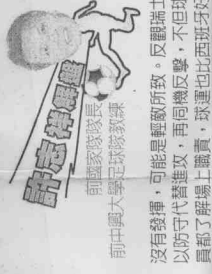 許志祥
前國家隊隊長
前中興大學足球隊教練
沒有發揮，可能是輕敵所致。反觀瑞士
以防守代替進攻，再伺機反擊，不但球
員都了解場上職責，球運也比西班牙好